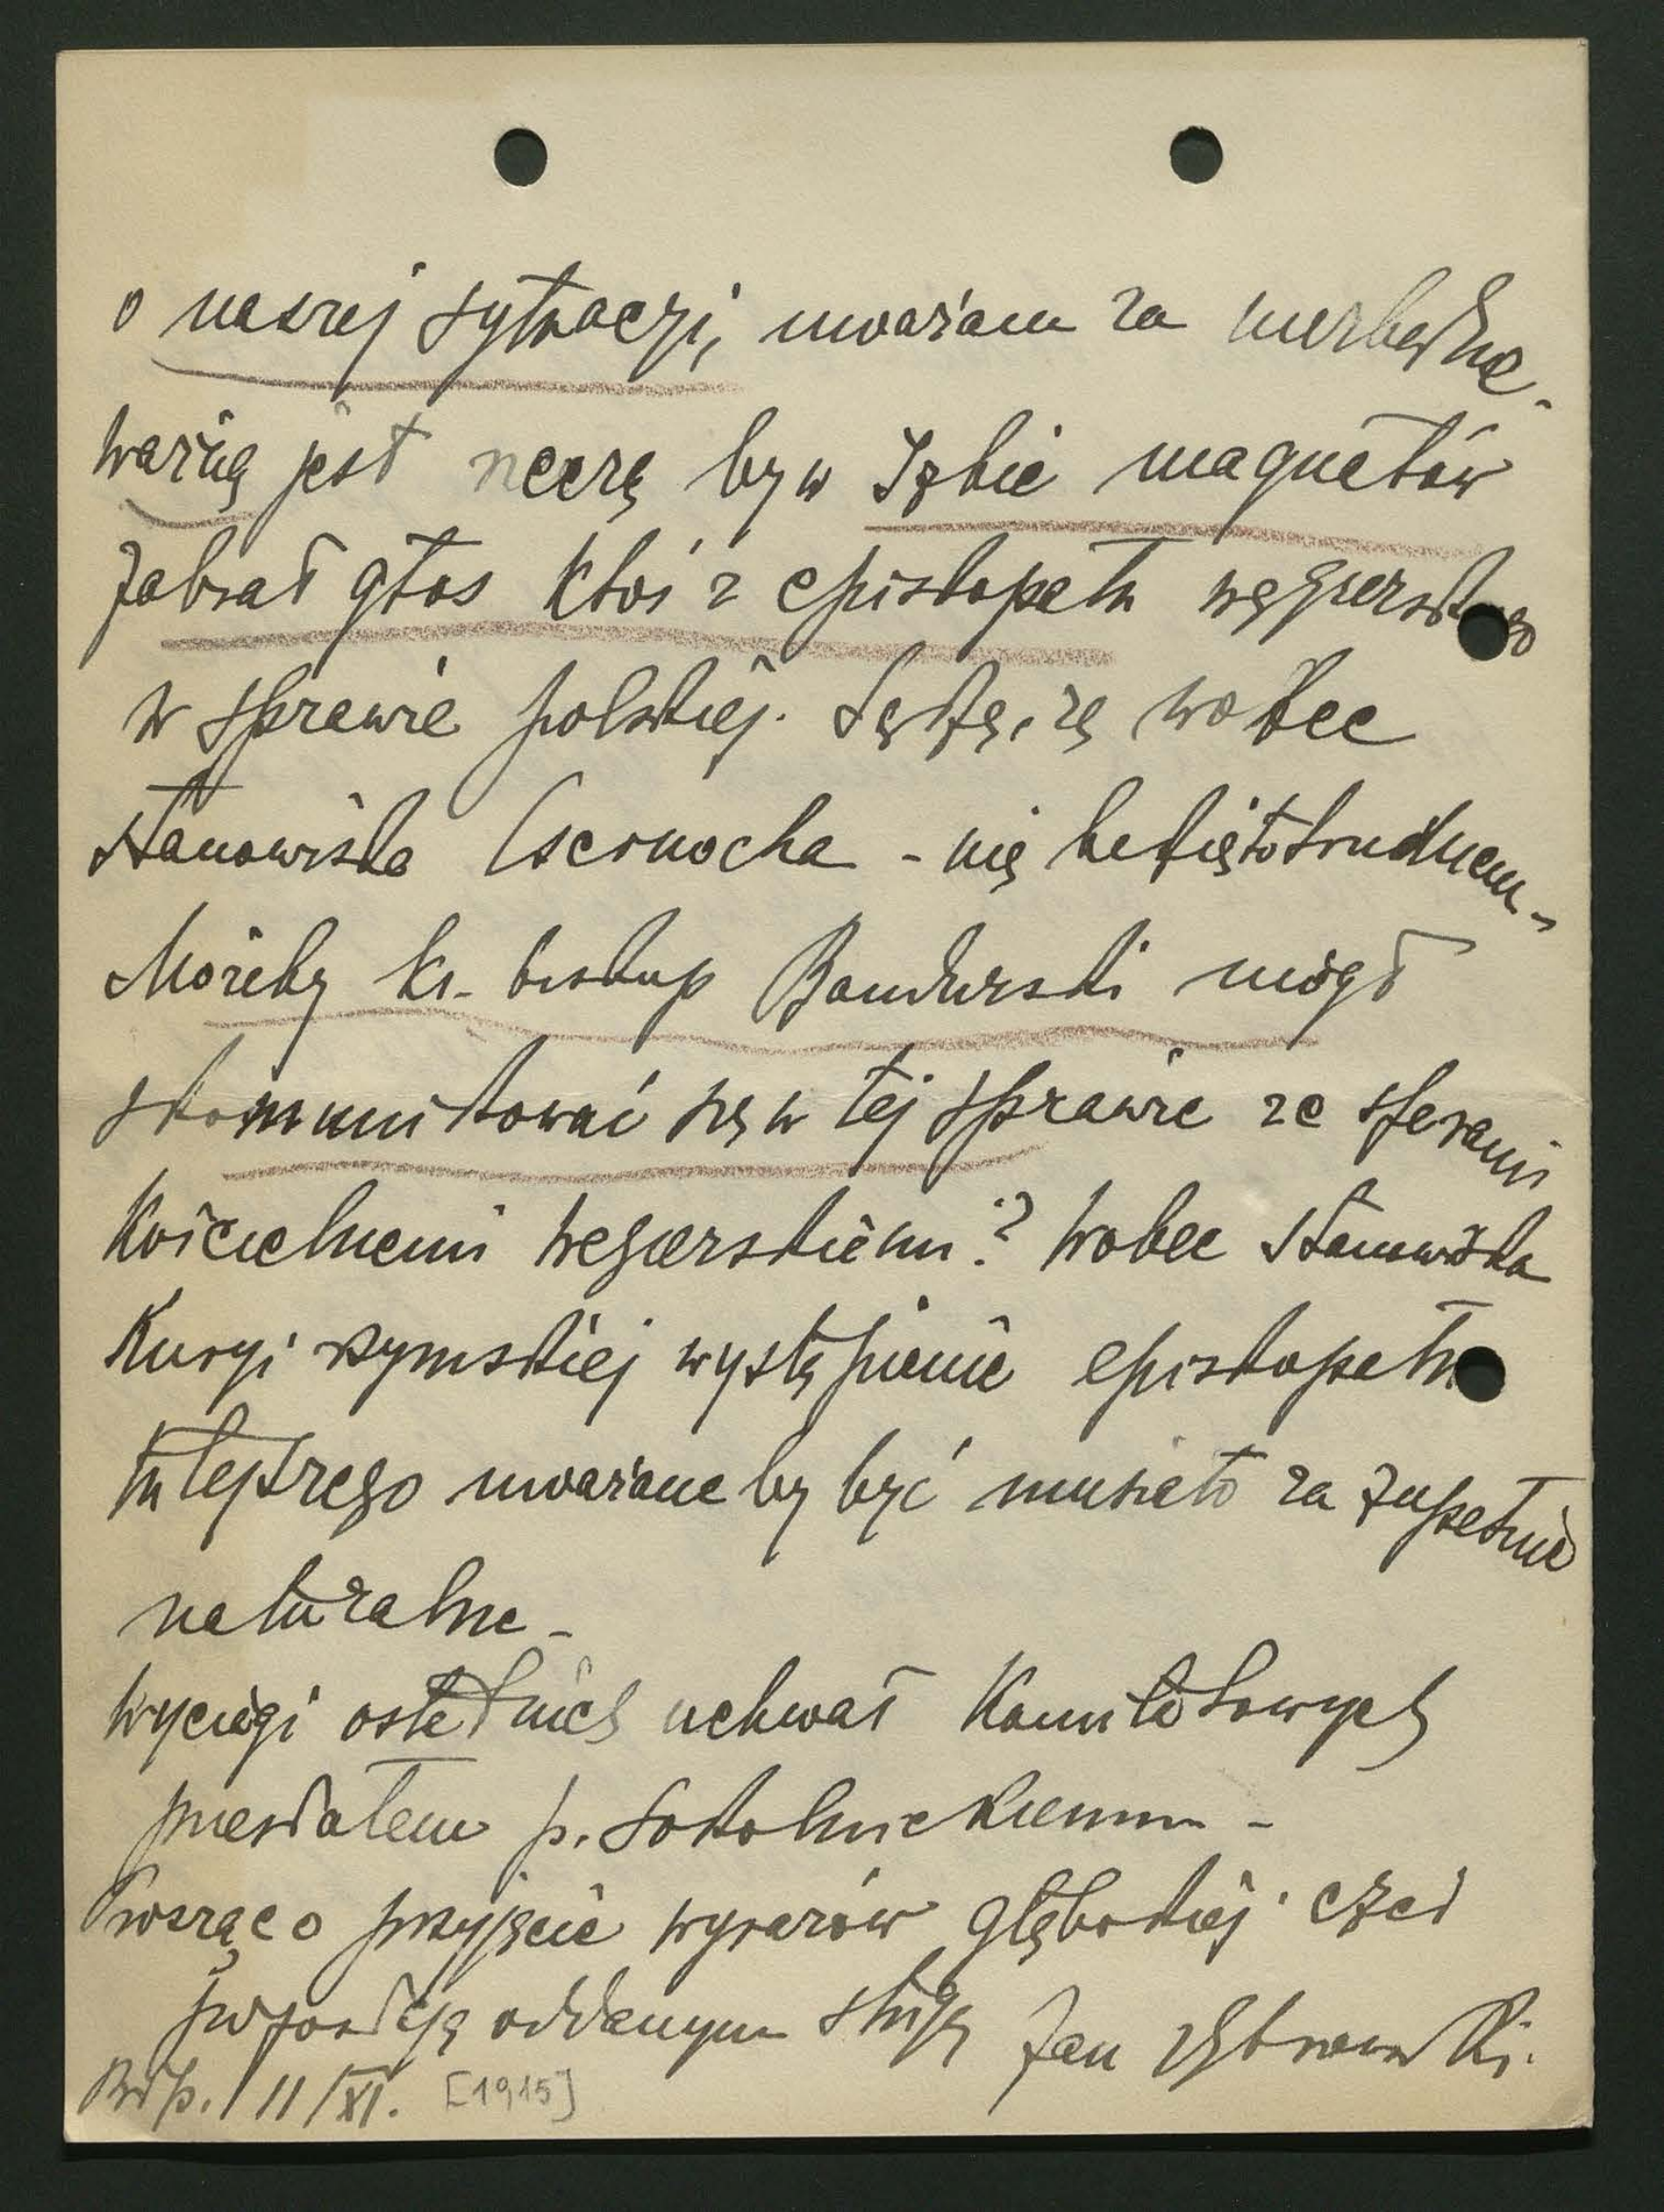 o naszej sytuacyi, uważam za niezbędne.
Ważną jest rzeczą by w Izbie magnatów
zabrał głos ktoś z episkopatu węgierskiego
w sprawie polskiej. Sądzę, że wobec
stanowiska Csernocha - nie będzie to trudnem -
Możeby ks. biskup Bandurski mógł
skommunikować się w tej sprawie ze sferami
Kościelnemi węgierskiemi? Wobec stanowiska
Kuryi rzymskiej wystąpienie episkopatu
tutejszego uważane by być musiało za zupełnie
naturalne -
Wyciągi ostatnich uchwał Komitatowych
przesłałem p. Sokolnickiemu -
Prosząc o przyjęcie wyrazów głębokiej czci
pozostaję oddanym sługą Jan Dąbrowski.
Bdp. 11/XI. [1915]